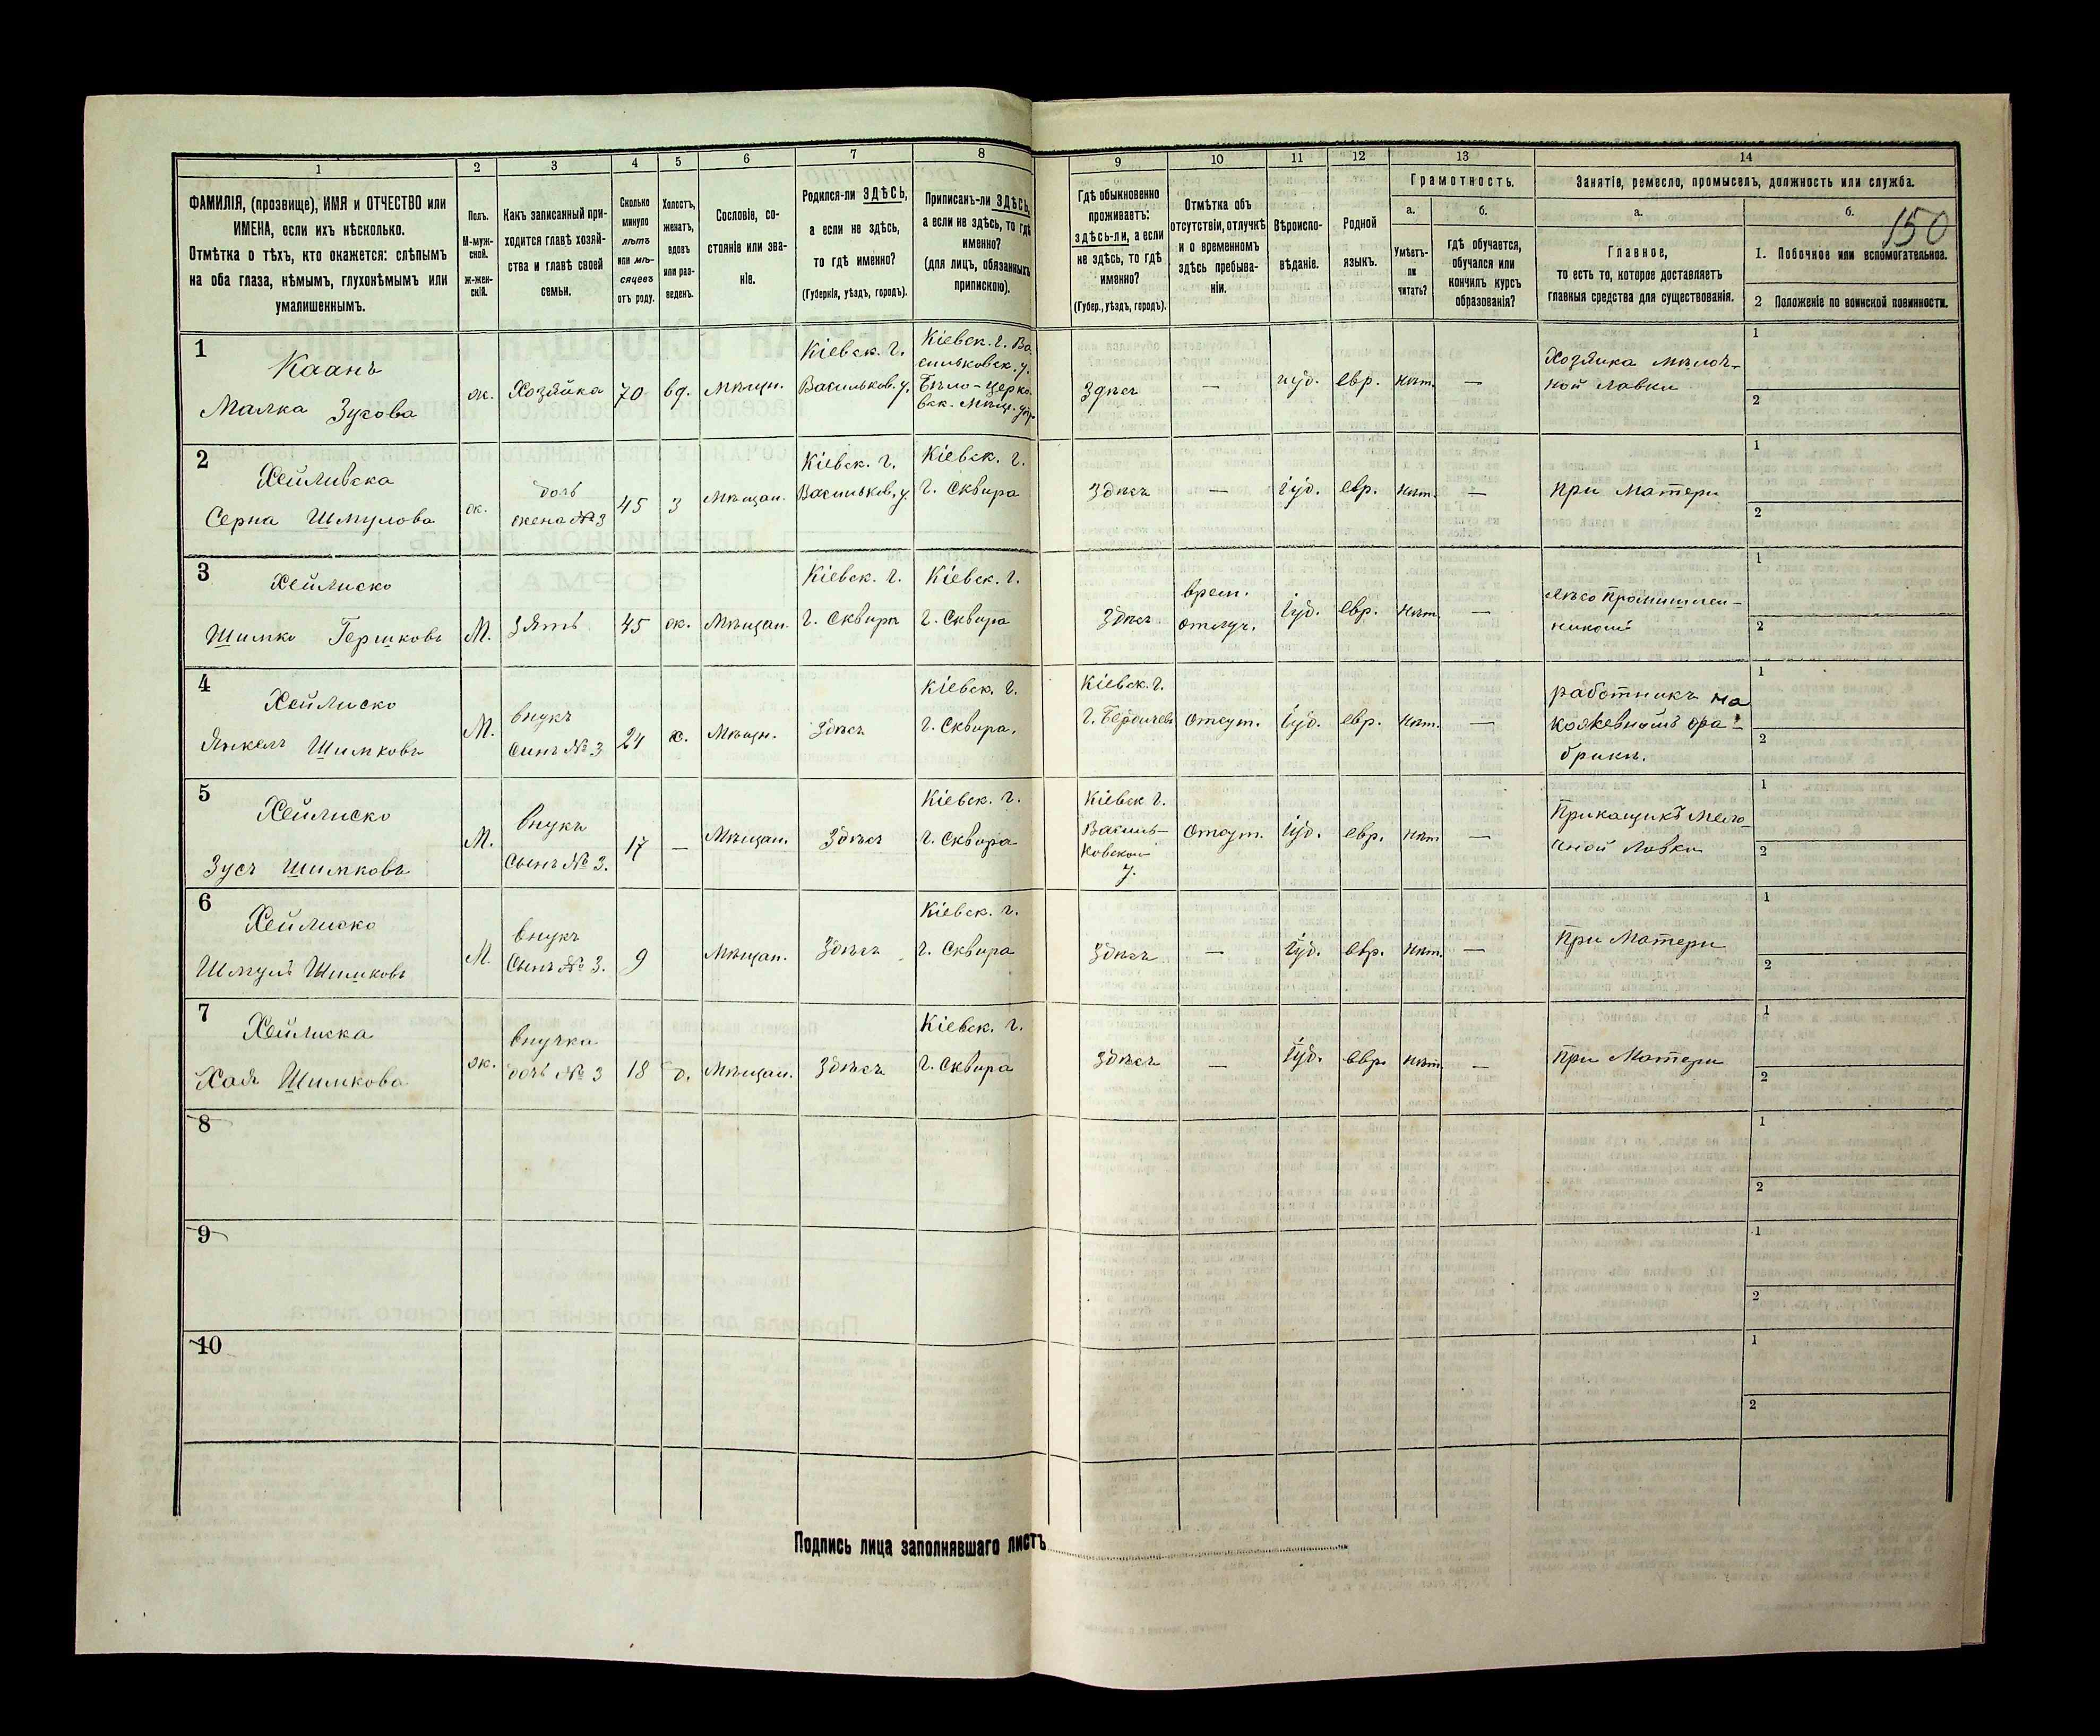 1 2 3 4 5 6 7 8 9 10 11 12 13 14
ФАМИЛІЯ, (прозвище), ИМЯ и ОТЧЕСТВО или
ИМЕНА, если ихъ нѣсколько.
Отмѣтка о тѣхъ, кто окажется: слѣпымъ
на оба глаза, нѣмымъ, глухонѣмымъ или
умалишеннымъ.
Полъ.
М-муж-
ской.
ж-жен-
скій.
Какъ записанный при-
ходится главѣ хозяй-
ства и главѣ своей
семьи.
Сколько
минуло
лѣтъ
или мѣ-
сяцевъ
отъ роду.
Холостъ,
женатъ,
вдовъ
или раз-
веденъ.
Сословіе, со-
стояніе или зва-
ніе.
Родился-ли ЗДѢСЬ,
а если не здѣсь,
то гдѣ именно?
(Губернія, уѣздъ, городъ).
Приписанъ-ли ЗДѢСЬ,
а если не здѣсь, то гдѣ
именно?
(для лицъ, обязанныхъ
припискою).
Гдѣ обыкновенно
проживаетъ:
здѣсь-ли, а если
не здѣсь, то гдѣ
именно?
(Губер., уѣздъ, городъ).
Отмѣтка объ
отсутствіи, отлучкѣ
и о временномъ
здѣсь пребыва-
ніи.
Вѣроиспо-
вѣданіе.
Родной
языкъ.
Грамотность.
а.
Умѣетъ-
ли
читать?
б.
гдѣ обучается,
обучался или
кончилъ курсъ
образованія?
Занятіе, ремесло, промыселъ, должность или служба.
а.
Главное,
то есть то, которое доставляетъ
главныя средства для существованія.
б.
150
1. Побочное или вспомогательное.
2 Положеніе по воинской повинности.
1
Каанъ
Малка Зусова
ж.
Хозяйка
70
вд.
Мѣщн.
Кіевск. г.
Васильков. у.
Кіевск. г. Ва-
сильковск. у.
Бѣло-церко-
вск. Мѣщ. упр.
Здѣсь
—
іуд.
евр.
нѣт.
—
Хозяйка мѣлоч-
ной лавки
1
2
2
Серна Шмулова
ж.
дочь
жена №3
45
З
Мѣщан.
Кіевск. г.
Васильков. у.
Кіевск. г.
г. Сквира
Здѣсь
—
іуд.
евр.
нѣт.
—
при матери
1
2
3
Хейлиско
Шимко Гершковъ
М.
Зять
45
ж.
Мѣщан.
Кіевск. г.
г. Сквирѣ
Кіевск. г.
г. Сквира
Здѣсь
врем.
отлуч.
іуд.
евр.
нѣт.
—
1
2
4
Хейлиско
Янкель Шимковъ
М.
внукъ
Сынъ №3
24
х.
Мѣщн.
Здѣсь
Кіевск. г.
г. Сквира.
Кіевск. г.
г. Бердичевъ
Отсут.
іуд.
евр.
нѣт.
—
работникъ на
кожевномъ фа-
брикѣ.
1
2
5
Хейлиско
Зусь Шимковъ
М.
внукъ
Сынъ №3.
17
—
Мѣщан.
Здѣсь
Кіевск. г.
г. Сквира
Кіевск г.
Василь-
ковской
у.
Отсут.
іуд.
евр.
нѣт
—
Прикащикъ Мело-
чной Лавки
1
2
6
Хейлиско
Шмуль Шимковъ
М.
внукъ
Сынъ №3.
9
Мѣщан.
Здѣсь
Кіевск. г.
г. Сквира
Здѣсь
—
іуд.
евр.
нѣт.
—
При Матери
1
2
7
Хейлиска
Хая Шимкова
ж.
внучка
дочь №3
18
д.
Мѣщан.
Здѣсь
Кіевск. г.
г. Сквира
Здѣсь
—
іуд.
евр.
нѣт.
—
При Матери
1
2
8
1
2
9
1
2
10
1
2
Подпись лица заполнявшаго листъ